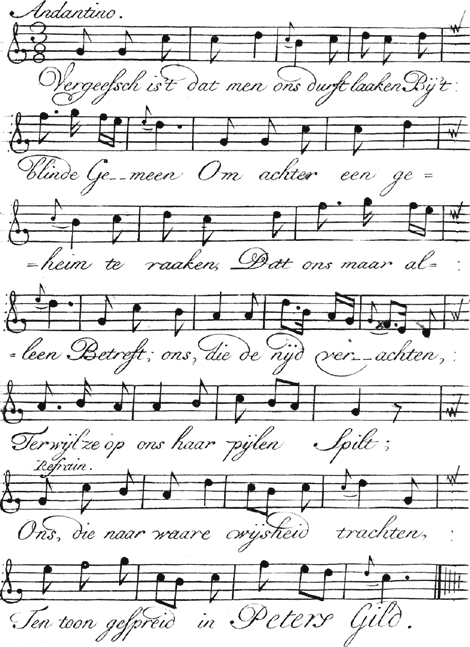 Andantino.
3
8
Vergeefsch is't dat men ons durft laaken Bij't
blinde Ge--meen Om achter een ge=
=heim te raaken, Dat ons maar al=
=leen Betreft; ons, die de nijd ver--achten,
Terwijl ze op ons haar pijlen Spilt;
Refrain.
Ons, die naar waare wijsheid trachten,
Ten toon gespreid in Peters Gild.